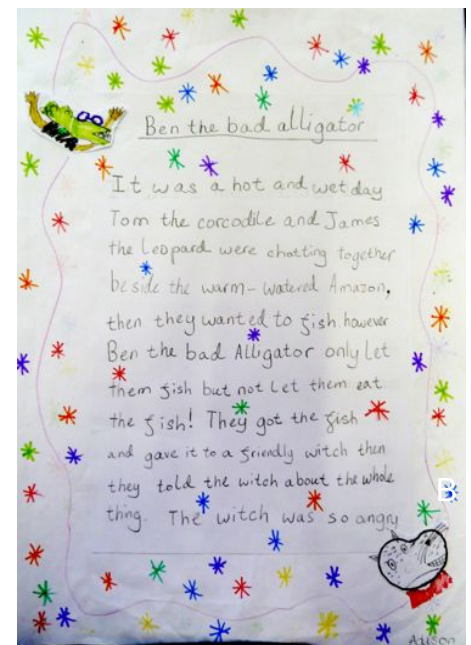 Ben the bad alligator
It was a hot and wet day
Tom the corcodile and James
the Leopard were chatting together
beside the warm-watered Amazon,
then they wanted to fish. however
Ben the bad Alligator only let
them fish but not let them eat
the fish! They got the fish
and gave it to a friendly witch then
they told the witch about the whole
thing. The witch was so angry
B
Adison